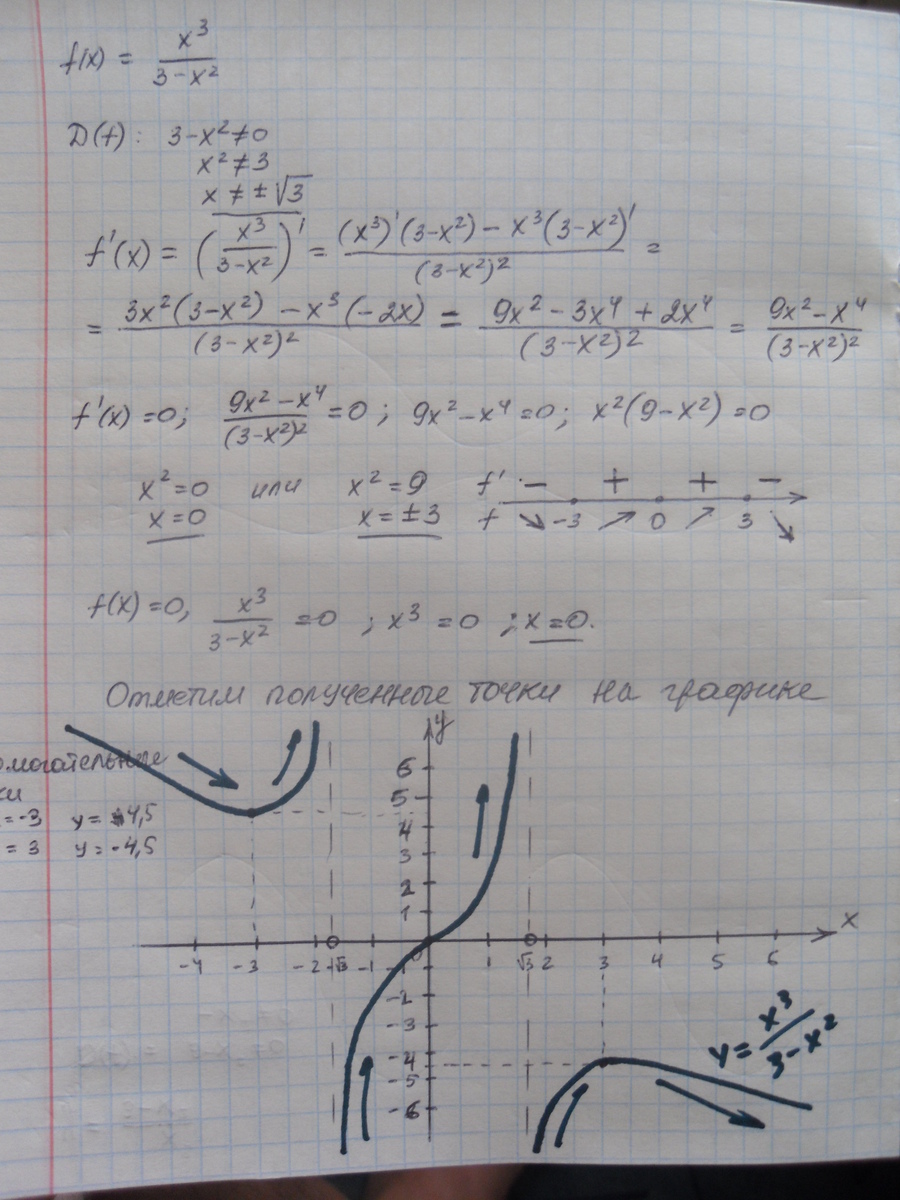 f(x) = x³/(3-x²)
D(f): 3-x²≠0
x²≠3
x ≠ ±√3
f'(x) = (x³/(3-x²))' = ((x³)'(3-x²) - x³(3-x²)')/(3-x²)² =
= (3x²(3-x²) - x³(-2x))/(3-x²)² = (9x² - 3x⁴ + 2x⁴)/(3-x²)² = (9x²-x⁴)/(3-x²)²
f'(x)=0; (9x²-x⁴)/(3-x²)²=0; 9x²-x⁴=0; x²(9-x²)=0
x²=0 или x²=9 f' - + + -
x=0 x=±3 f ↘ -3 ↗ 0 ↗ 3 ↘
f(x)=0, x³/(3-x²) =0 ; x³=0 ; x=0.
Отметим полученные точки на графике
y
омогательные
ки
=-3 y= 4,5
=3 y=-4,5
6
5
4
3
2
1
x
-4 -3 -2 -√3 -1 0 1 √3 2 3 4 5 6
-2
-3
-4
-5
-6
y = x³/(3-x²)